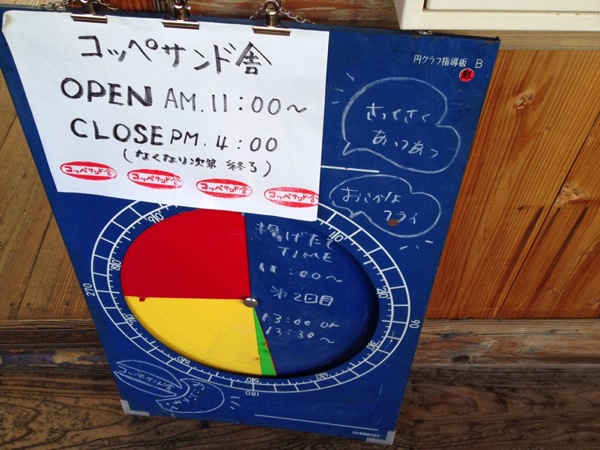 コッペサンド舎
OPEN AM.11:00～
CLOSE PM.4:00
(なくなり次第 終了)
コッペサンド舎
コッペサンド舎
コッペサンド舎
コッペサンド舎
円グラフ指導板 B
さっくさく
あっつあつ
おさかな
フライ
揚げたて
TIME
11:00～
第2回目
13:00 or
13:30～
270
90
180
コッペサンド舎